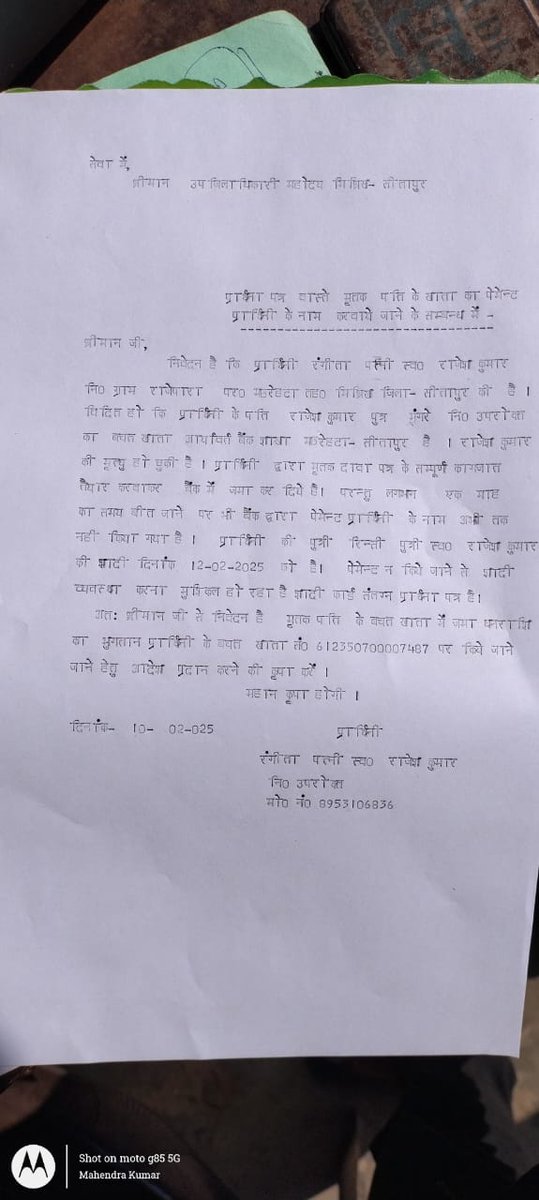 सेवा में,
श्रीमान उप जिलाधिकारी महोदय मिश्रिख- सीतापुर
प्रार्थना पत्र वास्ते मृतक पति के खाता का पेमेन्ट
प्रार्थिनी के नाम करवाये जाने के सम्बन्ध में -
श्रीमान जी,
निवेदन है कि प्रार्थिनी रंगीता पत्नी स्व0 राजेश कुमार
नि0 ग्राम राजेपारा पर0 मछरेहटा तह0 मिश्रिख जिला- सीतापुर की है ।
विदित हो कि प्रार्थिनी के पति राजेश कुमार पुत्र मूंगरे नि0 उपरोक्त
का बचत खाता आर्यावर्त बैंक शाखा मछरेहटा- सीतापुर है । राजेश कुमार
की मृत्यु हो चुकी है । प्रार्थिनी द्वारा मृतक दावा पत्र के सम्पूर्ण कागजात
तैयार करवाकर बैंक में जमा कर दिये है। परन्तु लगभग एक माह
का समय बीत जाने पर भी बैंक द्वारा पेमेन्ट प्रार्थिनी के नाम अभी तक
नहीं किया गया है । प्रार्थिनी की पुत्री रिन्ती पुत्री स्व0 राजेश कुमार
की शादी दिनांक 12-02-2025 को है। पेमेन्ट न किये जाने से शादी
व्यवस्था करना मुश्किल हो रहा है शादी कार्ड संलग्न प्रार्थना पत्र है।
अत: श्रीमान जी से निवेदन है मृतक पति के बचत खाता में जमा धनराशि
का भुगतान प्रार्थिनी के बचत खाता सं0 612350700007487 पर किये जाने
जाने हेतु आदेश प्रदान करने की कृपा करें ।
महान कृपा होगी ।
दिनांक- 10- 02-025 प्रार्थिनी
रंगीता पत्नी स्व0 राजेश कुमार
नि0 उपरोक्त
मो0 नं0 8953106836
Shot on moto g85 5G
Mahendra Kumar